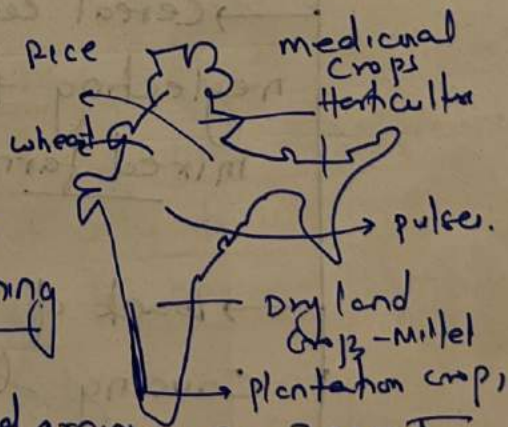 Rice
medicinal
crops
Horticultre
wheat
pulses.
Dry land
Crops-Millet
plantation crop,